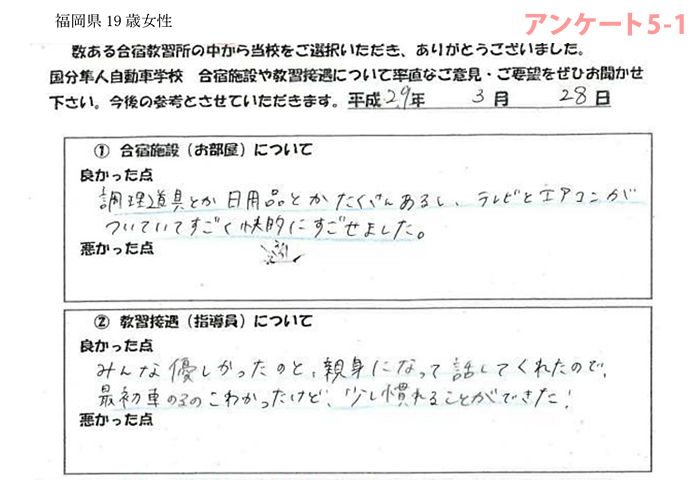 福岡県 19 歳女性
アンケート5-1
数ある合宿教習所の中から当校をご選択いただき、ありがとうございました。
国分隼人自動車学校　合宿施設や教習接遇について率直なご意見・ご要望をぜひお聞かせ
下さい。今後の参考とさせていただきます。平成29年　3月　28日
① 合宿施設（お部屋）について
良かった点
調理道具とか日用品とかたくさんあるし、テレビとエアコンが
ついていてすごく快的にすごせました。
悪かった点
② 教習接遇（指導員）について
良かった点
みんな優しかったのと、親身になって話してくれたので、
最初車のるのこわかったけど、少し慣れることができた！
悪かった点